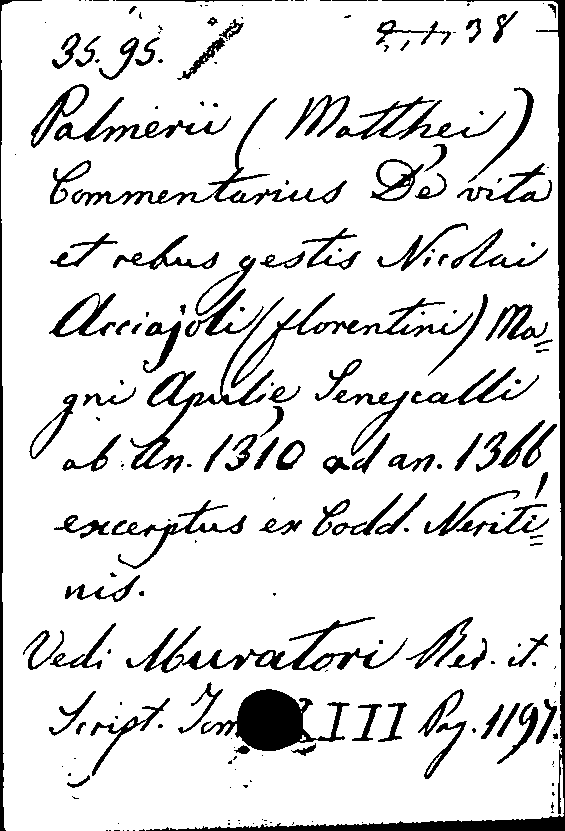 35.95.
38
Palmerii (Matthęi)
Commentarius De vita
et rebus gestis Nicolai
Acciajoli (florentini) Ma=
gni Apulię Senescalli
ab An. 1310 ad an. 1366,
excerptus ex Codd. Neriti=
nis.
Vedi Muratori Rer. it.
Script. Tom XIII Pag. 1197.